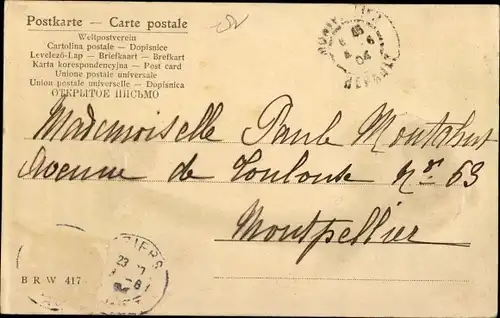 Postkarte — Carte postale
Weltpostverein
Cartolina postale — Dopisnice
Levelező-Lap — Briefkaart — Brefkort
Karta korespondencyjna — Post card
Unione postale universale
Union postale universelle — Dopisnica
ОТКРЫТОЕ ПИСЬМО
04
DEPART
Mademoiselle Paule Montabert
Avenue de Toulouse No 63
Montpellier
IERS
23
B R W 417